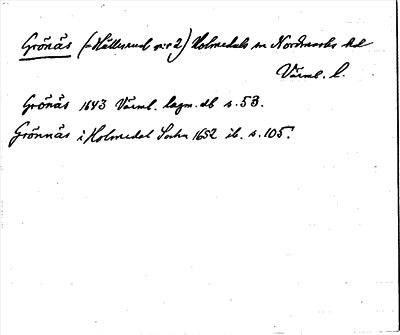 Grönäs (= Hällesrud nr 2) Holmedals sn Nordmarks hd
Värml. l.
Grönäs 1643 Värml. lagm. db s. 53.
Grönnäs i Holmedal Sochn 1652 ib. s. 105.